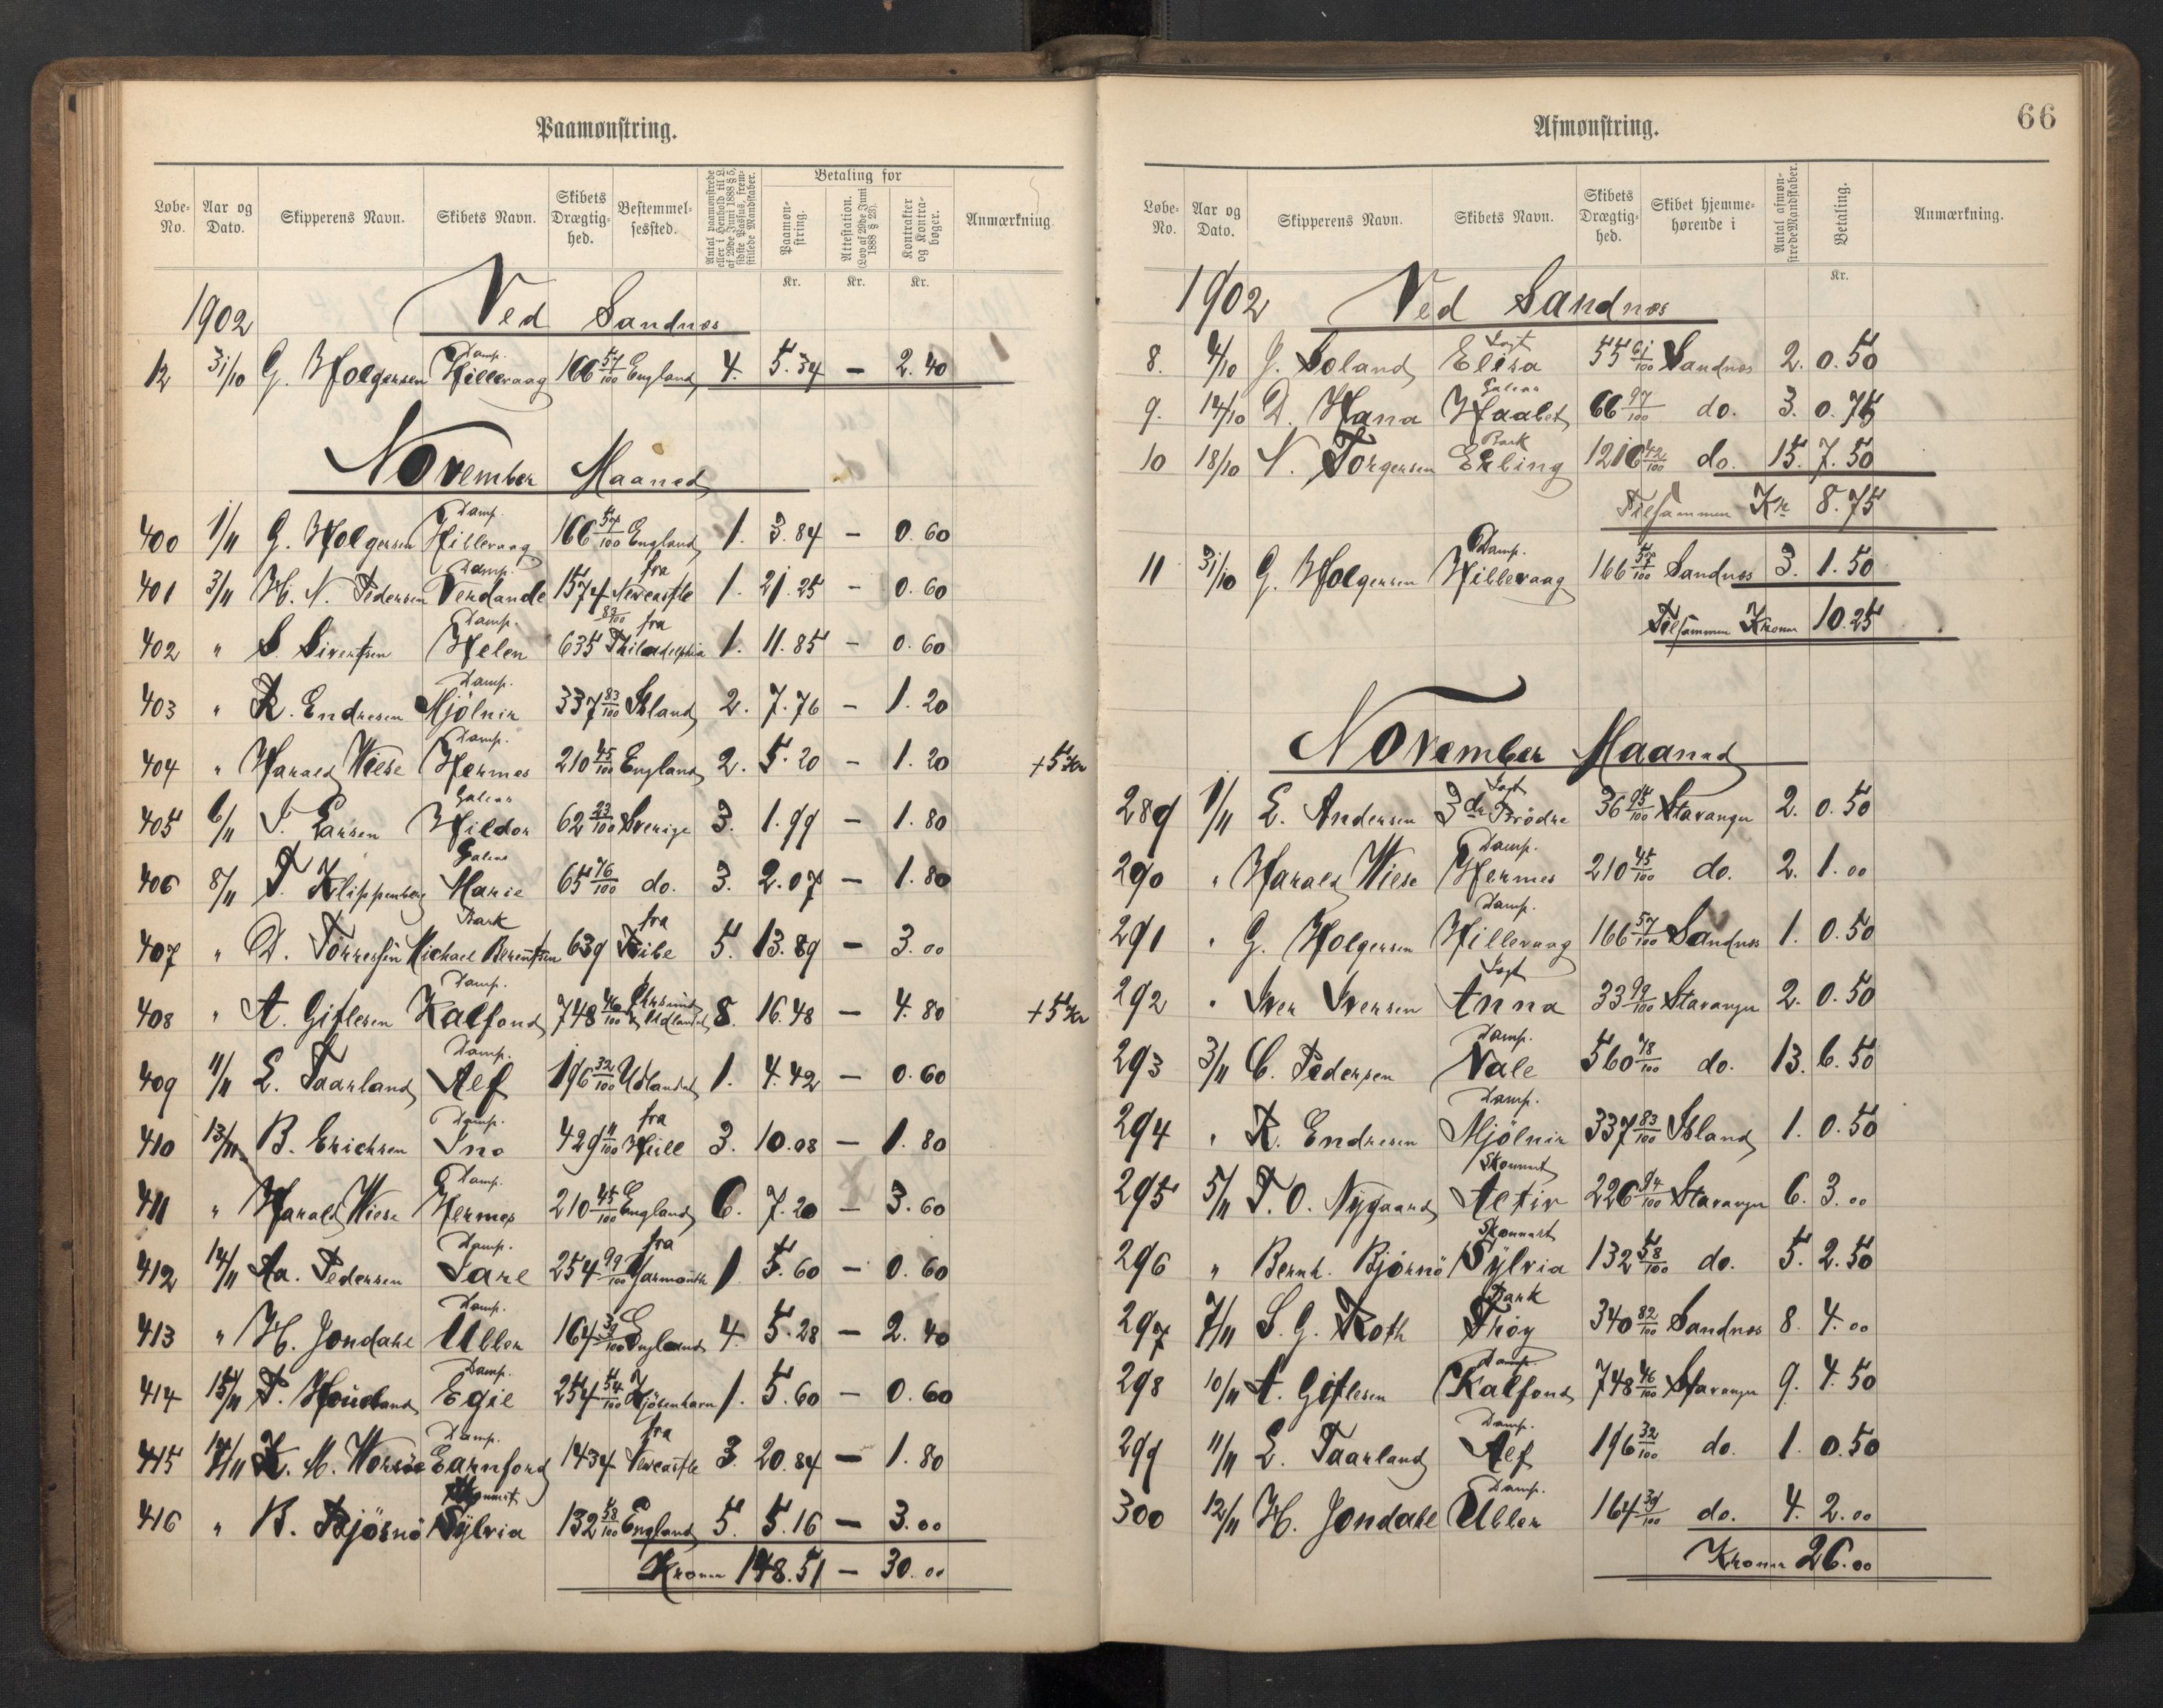 Paamønstring.
Løbe-No. Aar og Dato. Skipperens Navn. Skibets Navn. Skibets Drægtighed. Bestemmelsessted. Antal paamønstrede eller i Henhold til L. af 29de Juni 1888 § 5, sidste Passus, fremstillede Mandskaber. Betaling for Paamønstring. Attestation. (Lov af 29de Juni 1888 § 23). Kontrakter og Kontrabøger. Anmærkning
Kr. Kr. Kr.
1902 Ved Sandnæs
12 31/10 G. Holgersen Damp. Hillevaag 166 57/100 England 4. 5.34 — 2.40
November Maaned
400 1/11 G. Holgersen Damp Hillevaag 166 57/100 England 1. 3.84 — 0.60
401 3/11 H. N. Pedersen Damp. Verdande 1574 fra Newcastle 1. 21.25 — 0.60
402 " S. Sivertsen Damp. Helen 635 82/100 fra Philadelphia 1. 11.85 — 0.60
403 " R. Endresen Damp. Mjölnir 337 83/100 Island 2. 7.76 — 1.20
404 " Harald Wiese Damp. Hermes 210 45/100 England 2. 5.20 — 1.20 + 5 Kr
405 6/11 J. Larsen Galeas Hildor 62 23/100 Sverige 3. 1.99 — 1.80
406 8/11 T. Klippenberg Galeas Marie 65 76/100 do. 3. 2.07 — 1.80
407 " D. Torressen Bark Michael Berentsen 639 fra Ribe 5. 13.89 — 3.00
408 " A. Gitlesen Damp. Kalfond 748 46/100 Udlandet 8. 16.48 — 4.80 + 5 Kr
409 11/11 L. Taarland Damp. Alf 196 32/100 Udlandet 1. 4.42 — 0.60
410 13/11 B. Erichsen Damp. Ino 429 11/100 fra Hull 3. 10.08 — 1.80
411 " Harald Wiese Damp. Hermes 210 45/100 England 6. 7.20 — 3.60
412 14/11 Aa. Pedersen Damp. Jarl 254 99/100 fra Yarmouth 1 5.60 — 0.60
413 " H. Jondahl Damp. Uller 164 39/100 England 4. 5.28 — 2.40
414 15/11 T. Houeland Damp. Egil 254 54/100 Kjöbenhavn 1. 5.60 — 0.60
415 17/11 K. M. Worsöe Damp. Earnford 1434 fra Newcastle 3. 20.84 — 1.80
416 " B. Bjørnö Skonnert Sylvia 132 58/100 England 5. 5.16 — 3.00
Kroner 148.51 — 30.00
66
Afmønstring.
Løbe-No. Aar og Dato. Skipperens Navn. Skibets Navn. Skibets Drægtighed. Skibet hjemmehørende i Antal afmønstrede Mandskaber. Betaling. Anmærkning.
Kr.
1902 Ved Sandnæs
8. 4/10 J. Soland Jagt Elisa 55 61/100 Sandnæs 2. 0.50
9. 14/10 D. Hana Galeas Haabet 66 97/100 do. 3. 0.75
10 18/10 N. Torgersen Bark Erling 1216 42/100 do. 15. 7.50
Tilsammen Kr 8.75
11 31/10 G. Holgersen Damp. Hillevaag 166 57/100 Sandnæs 3. 1.50
Tilsammen Kroner 10.25
November Maaned
289 1/11 E. Andersen Jagt 3de Brödre 36 95/100 Stavanger 2. 0.50
290 " Harald Wiese Damp. Hermes 210 45/100 do. 2. 1.00
291 " G. Holgersen Damp. Hillevaag 166 57/100 Sandnæs 1. 0.50
292 " Iver Iversen Jagt Anna 33 99/100 Stavanger 2. 0.50
293 3/11 C. Pedersen Damp. Vale 560 78/100 do. 13. 6.50
294 " R. Endresen Damp. Mjölnir 337 83/100 Island 1. 0.50
295 5/11 T. O. Nygaard Skonnert Activ 226 94/100 Stavanger 6. 3.00
296 " Bernh. Bjørnö Skonnert Sylvia 132 58/100 do. 5. 2.50
297 7/11 S. G. Roth Bark Thöy 340 82/100 Sandnæs 8. 4.00
298 10/11 A. Gitlesen Damp. Kalfond 748 46/100 Stavanger 9. 4.50
299 11/11 L. Taarland Damp. Alf 196 32/100 do. 1. 0.50
300 12/11 H. Jondahl Damp. Uller 164 39/100 do. 4. 2.00
Kroner 26.00